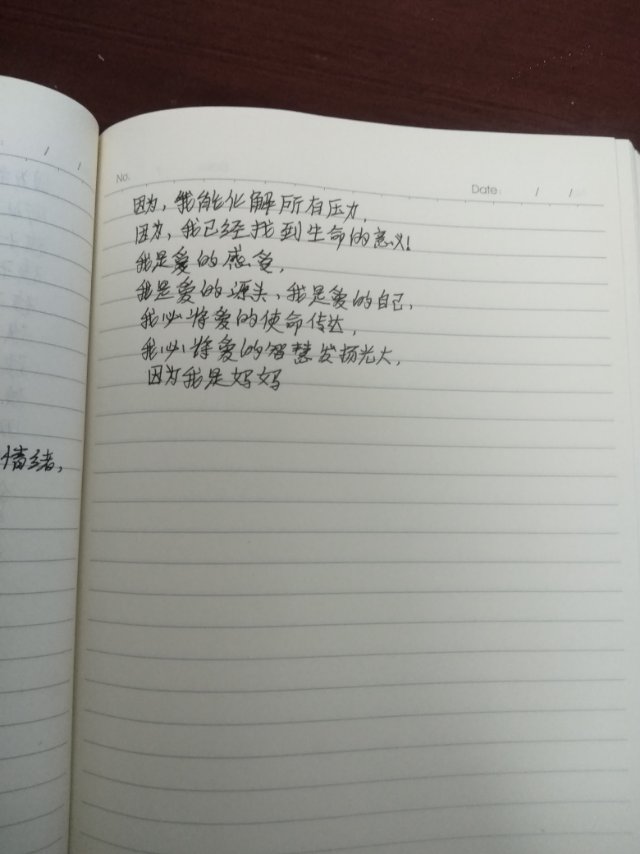 No.
Date: / /
因为，我能化解所有压力，
因为，我已经找到生命的意义！
我是爱的感受，
我是爱的源头、我是爱的自己，
我必将爱的使命传达，
我必将爱的智慧发扬光大，
因为我是妈妈
情绪，